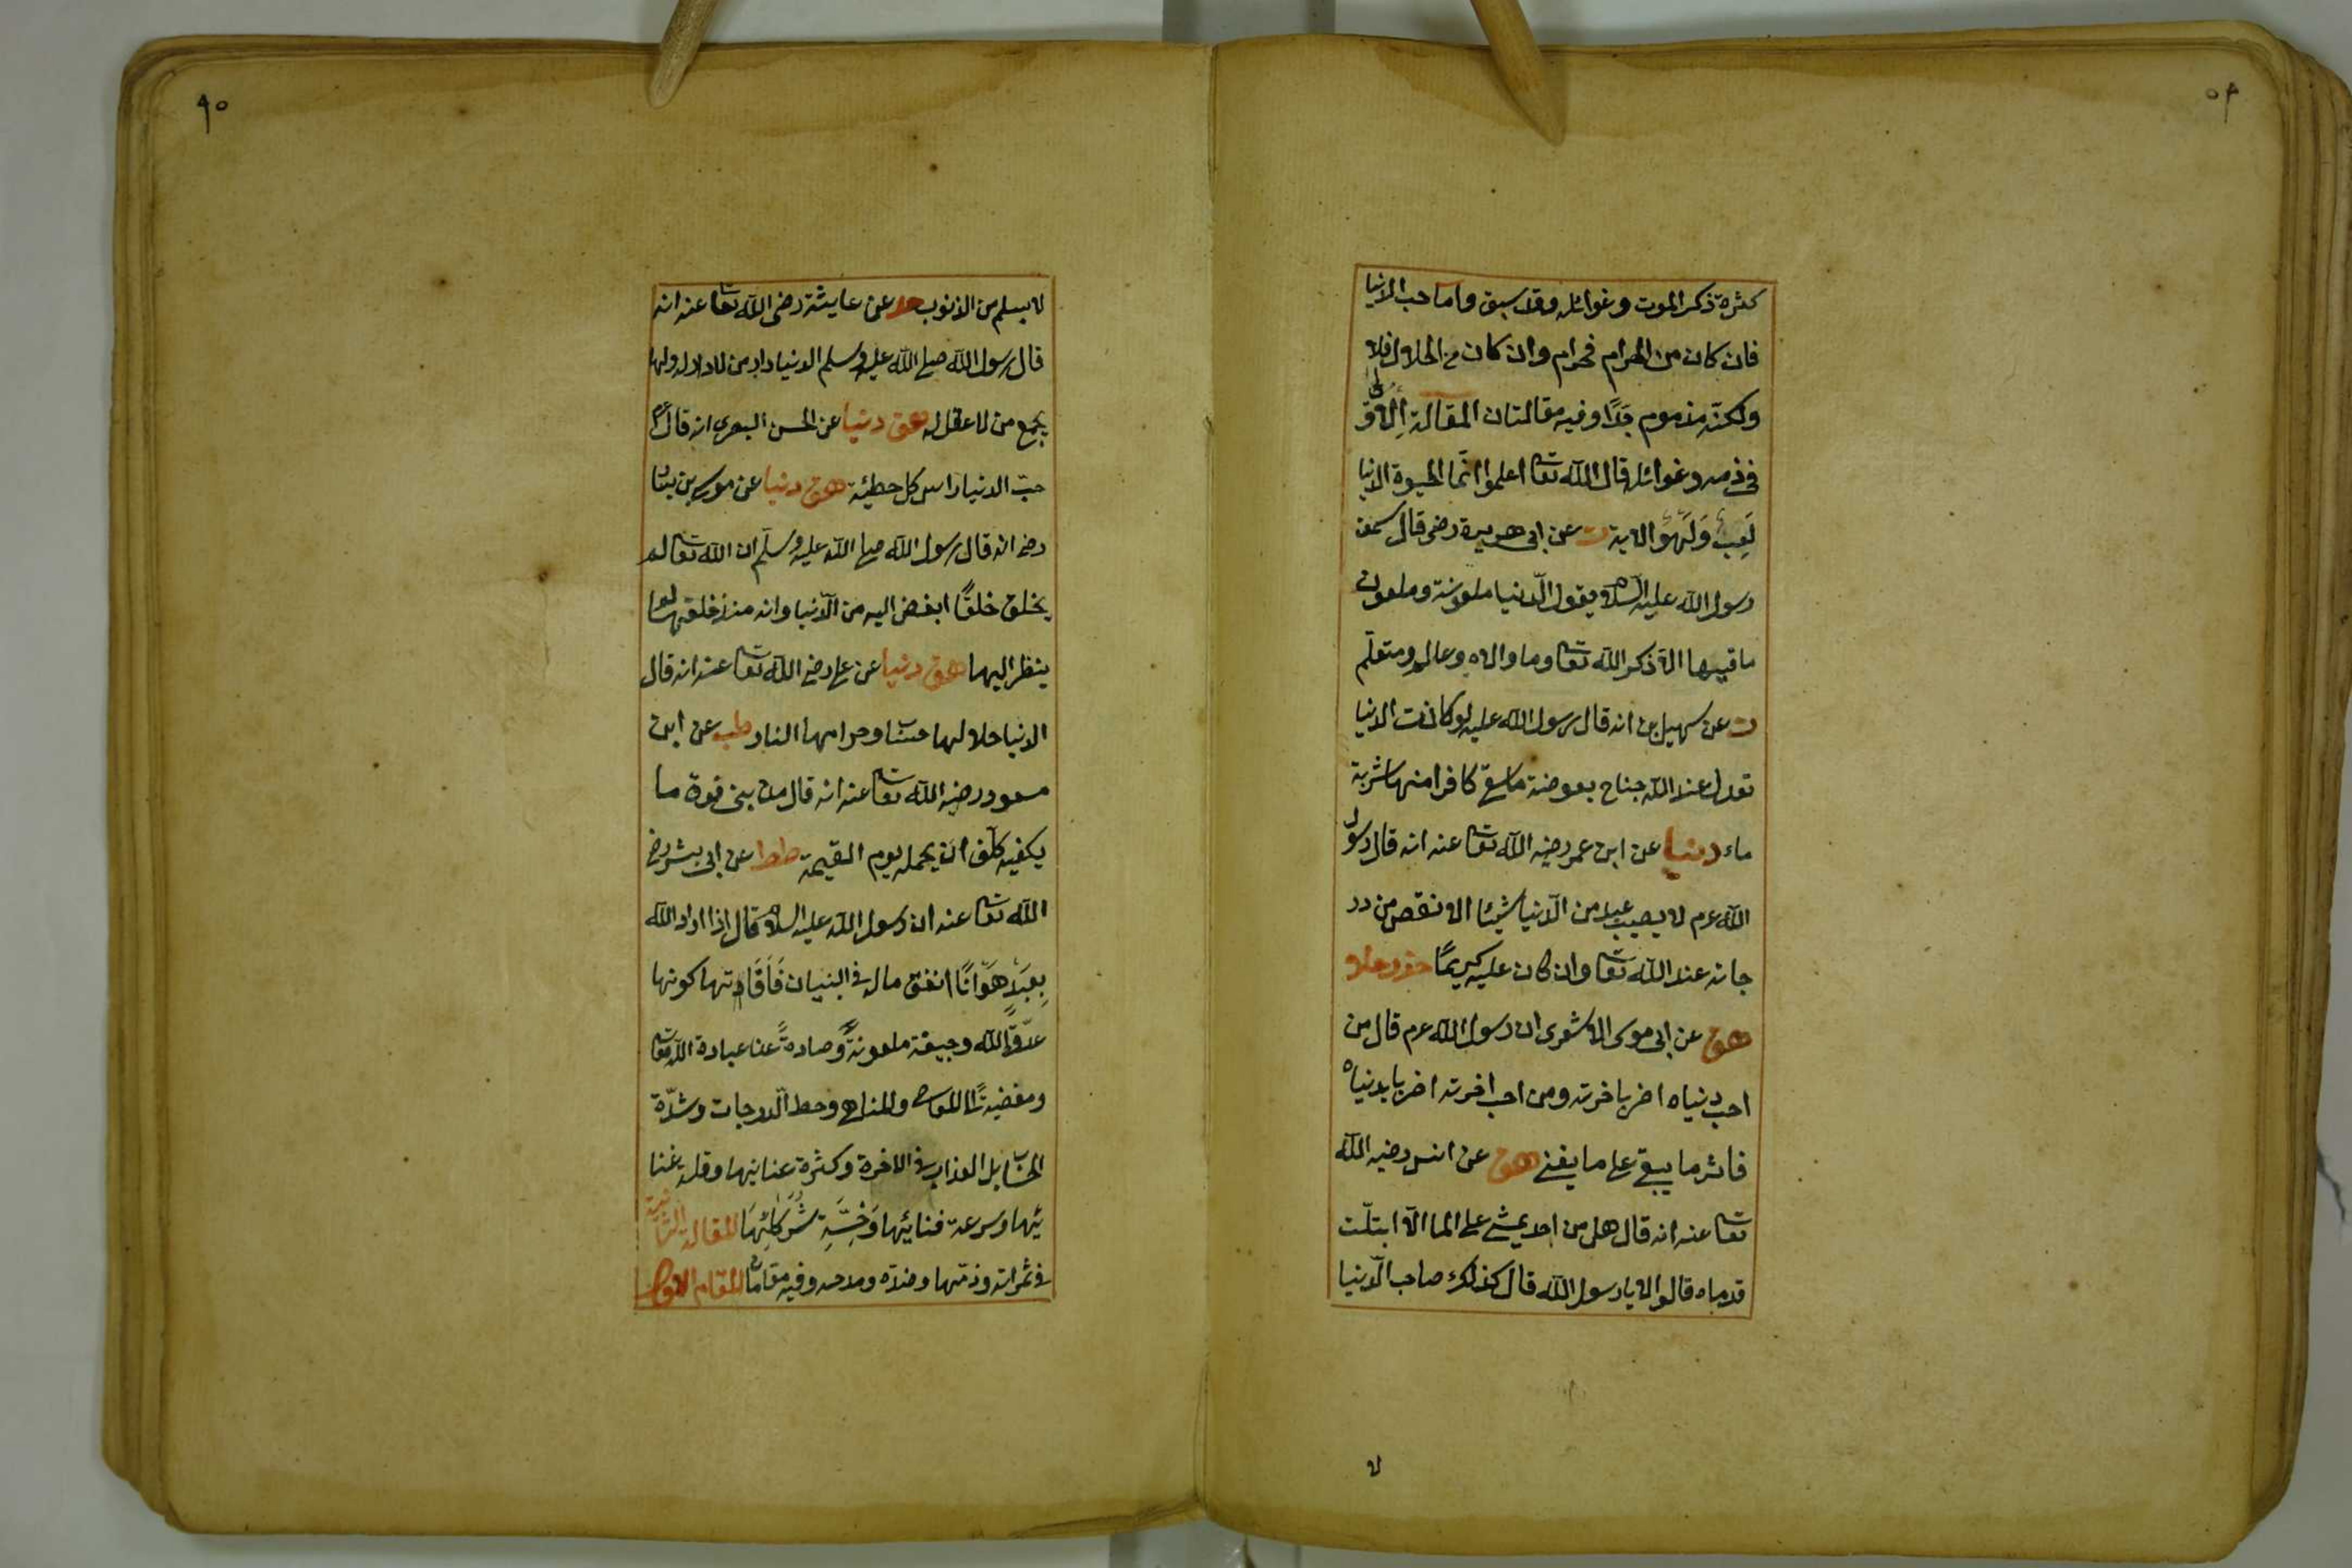 كثرة ذكر الموت وغوائله وقد سبق واما حب الدنيا
فان كان من الحرام فحرام وان كان من الحلال فلا
ولكنه مذموم جدّا وفيه مقالتان المقالة الاولى
فى ذمه وغوائله قال الله تعا اعلموا انّما الحيوة الدنيا
لَعِبٌ وَلَهْوٌ الاية ت عن ابى هريرة رضى قال سمعت
رسول الله عليه السلام يقول الدّنيا ملعونة وملعون
ما فيها الا ذكر الله تعا وما والاه وعالم ومتعلّم
ت عن سهيل بن انه قال رسول الله عليه لو كانت الدنيا
تعدل عند الله جناح بعوضة ما سقى كافرا منها شربة
ماء دنيا عن ابن عمر رضيه الله تعا عنه انه قال رسول
الله عرم لا يصيب عبد من الدّنيا شيئا الا نقص من در
جاته عند الله تعا وان كان عليه كريمًا حد
هق عن ابى موسى الاشعرى ان رسول الله عرم قال من
احب دنياه اضر باخرته ومن احب اخرته اضر بايدنياه
فاثر ما يبقى على ما يفنى هق عن انس رضيه الله
تعا عنه انه قال هل من احد يمشى على الما الّا ابتلّت
قدماه قالوا لا يا رسول الله قال كذلك صاحب الدّنيا
لا
لا يسلم من الذنوب حد عن عايشة رضى الله تعا عنه انه
قال رسول الله صلى الله عليه وسلم الدنيا دار من لا دار له ولها
يجمع من لا عقل له هق دنيا عن الحسن البصرى انه قال
حبّ الدنيا راس كل خطيئة هق دنيا عن موسى بن يسا
رضى انه قال رسول الله صلى الله عليه وسلّم ان الله تعا لم
يخلق خلقًا ابغض اليه من الدّنيا وانه منذ خلقها لم
ينظر اليها هق دنيا عن على رضى الله تعا عنه انه قال
الدنيا حلالها حساب وحرامها النار طب عن ابن
مسعود رضيه الله تعا عنه انه قال من بنى فوق ما
يكفيه كلّف ان يحمله يوم القيمة ططا عن ابى بشر رضى
الله تعا عنه ان رسول الله عليه السلام قال اذا اراد الله
بِعَبْدٍ هَوَانًا انفق ماله فى البنيان فَآفَاتها كونها
عدوّة لله وجيفة ملعونةً وصادةً عن عبادة الله تعا
ومفضيةً الى المعاصى والمناهى وحط الدّرجات وشدّة
الحساب بل العذاب فى الاخرة وكثرة عنائها وقلة غنا
ئها وسرعة فنائها وَخِسَّةِ شُرَكَائِهَا المقالة الثانية
فى ثمراته وذمّها وضدّه ومدحه وفيه مقامان المقام الاول